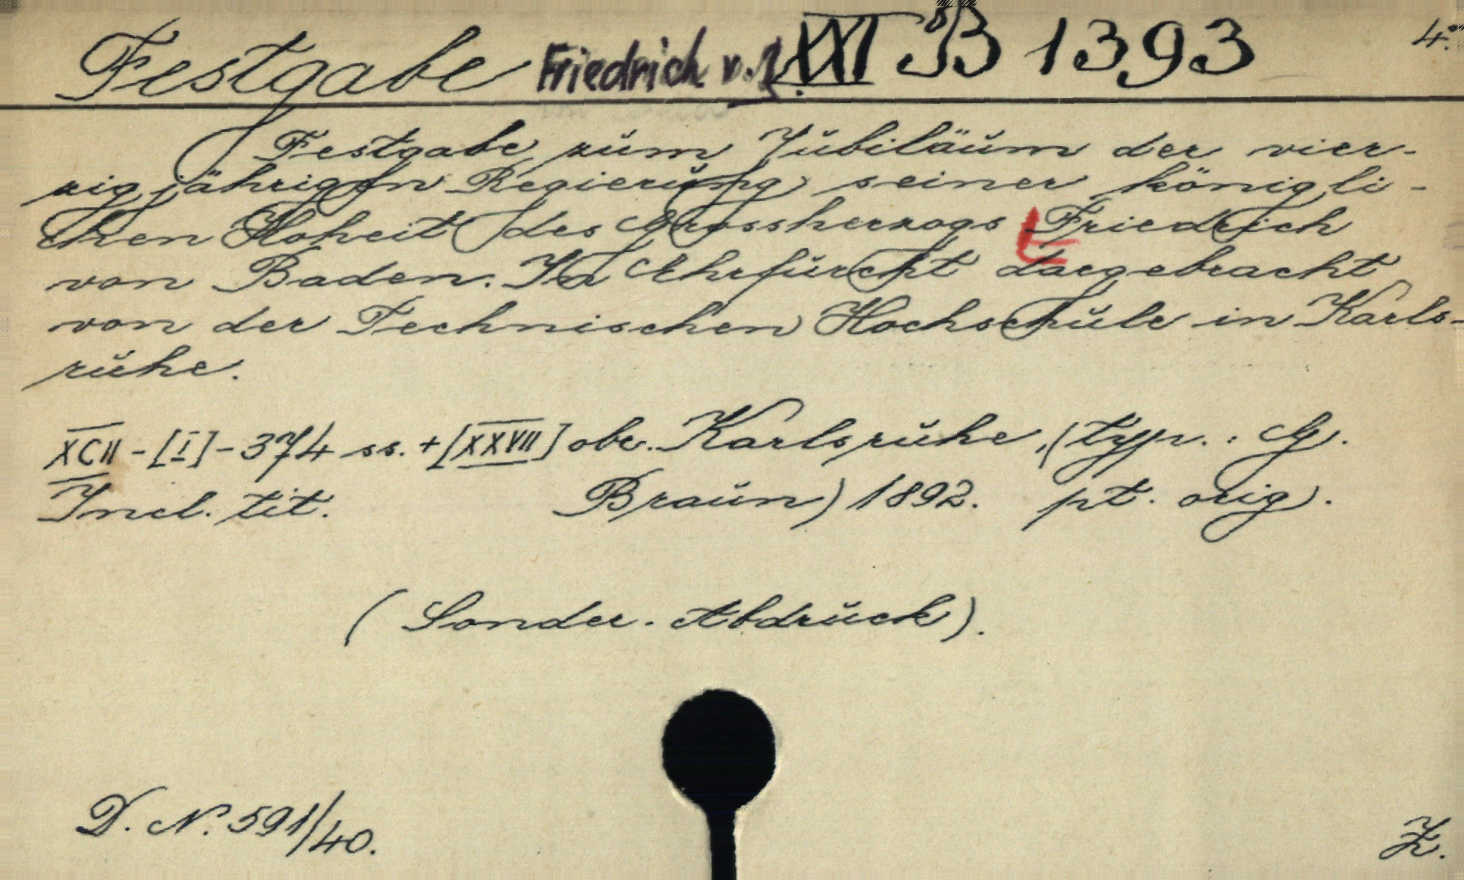 Festgabe Friedrich v. XXI B 1393 4°
Festgabe zum Jubiläum der vier-
zigjährigen Regierung seiner königli-
chen Hoheit des Grossherzogs Friedrich
von Baden. In Ehrfurcht dargebracht
von der Technischen Hochschule in Karls-
ruhe.
XCII - [I] - 374 ss. + [XXVII] obr. Karlsruhe, (typ. : G.
Incl. tit. Braun) 1892. pt. orig.
(Sonder-Abdruck).
D. N. 591/40.
Z.